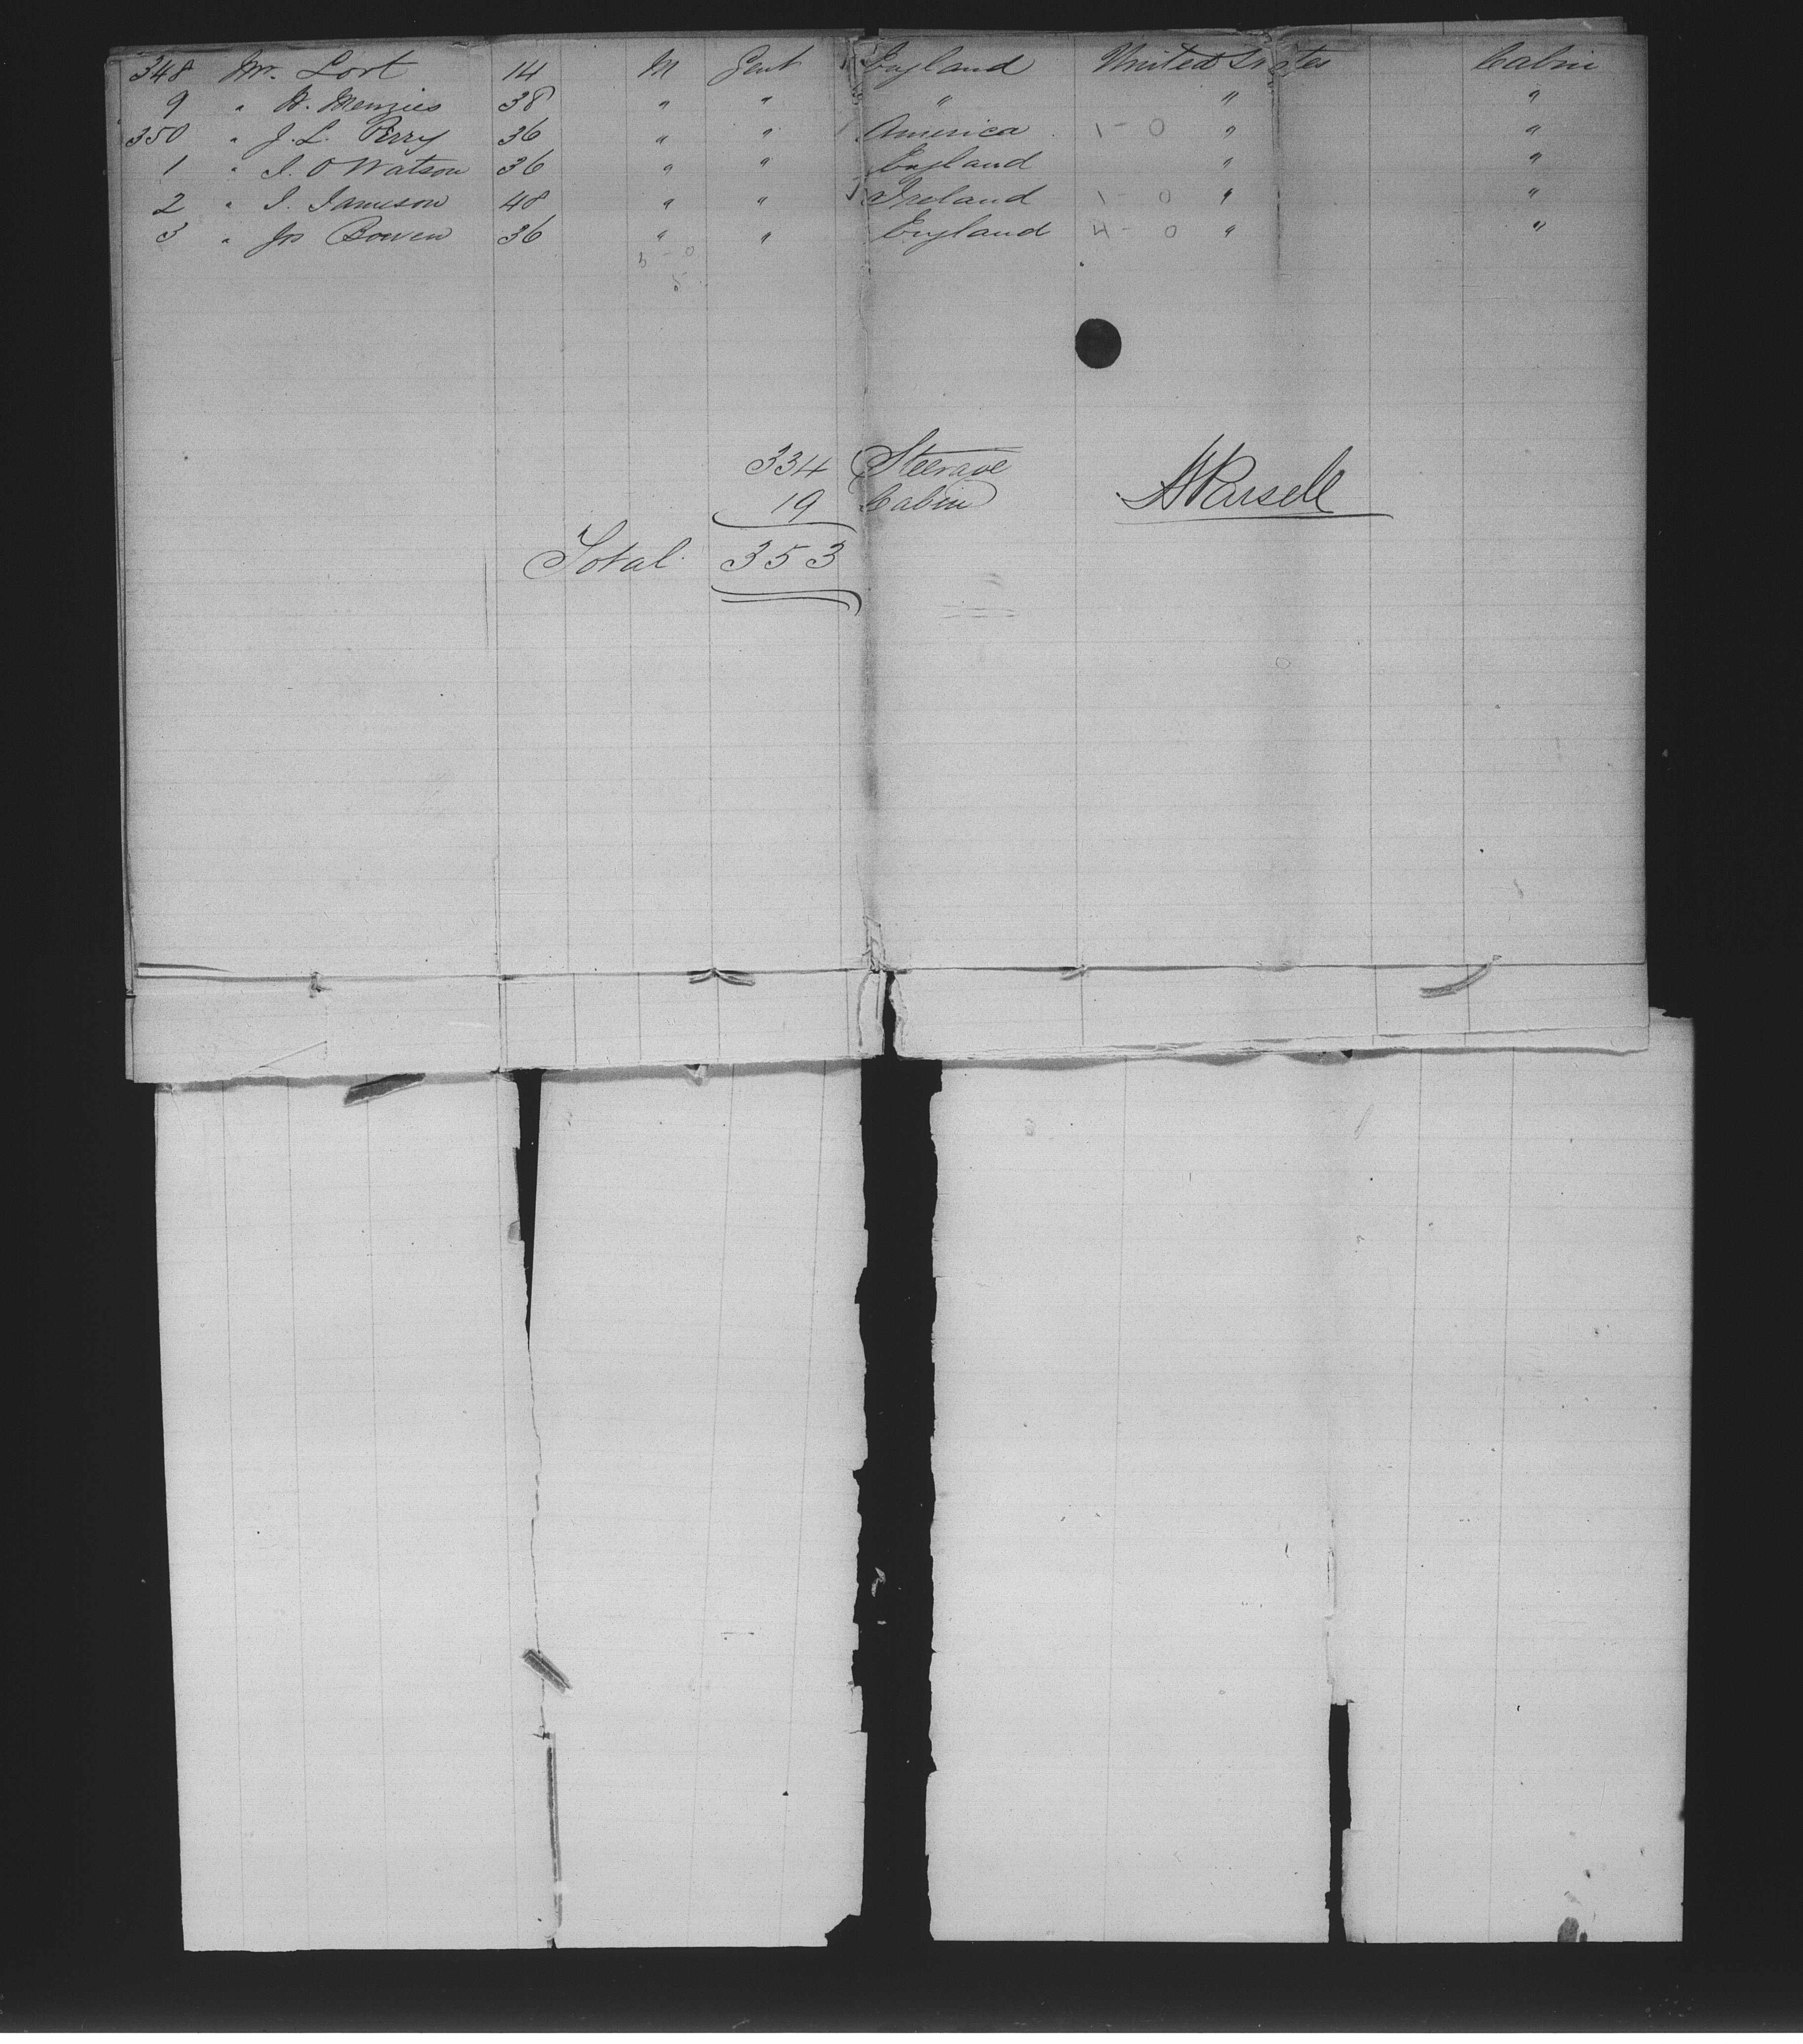 348 Mr. Lort 14 M Gent England United States Cabin
9 " W. Menzies 38 " " " " "
350 " J. L. Perry 36 " " America 1-0 " "
1 " J. O Watson 36 " " England " "
2 " J. Jameson 48 " " Ireland 1-0 " "
3 " Jos Bowen 36 " " England 4-0 " "
5-0
5
334 Steerage
19 Cabin
Total 353
Parsell